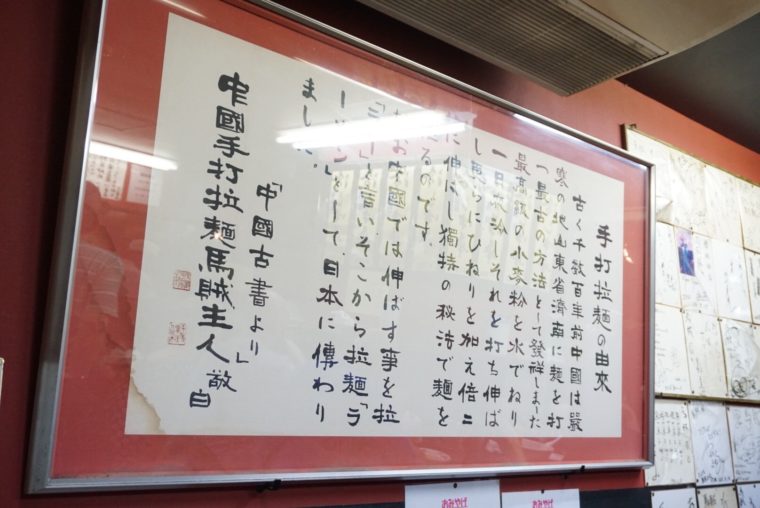 手打拉麵の由來
古く千数百年前中國は嚴
寒の地山東省濟南に麵を打
つ最古の方法として發祥しました
最高級の小麦粉と水でねり
一日寝かしそれを打ち伸ば
し更らにひねりを加え倍二
倍に伸ばし獨特の秘法で麺を
るのです。
なお中國では伸ばす事を拉
と言いそこから拉麺「ラ
ーメン」として、日本に傳わり
ました。
「中國古書より」
中國手打拉麺馬賊主人敬
白
おみやげ
おみやげ